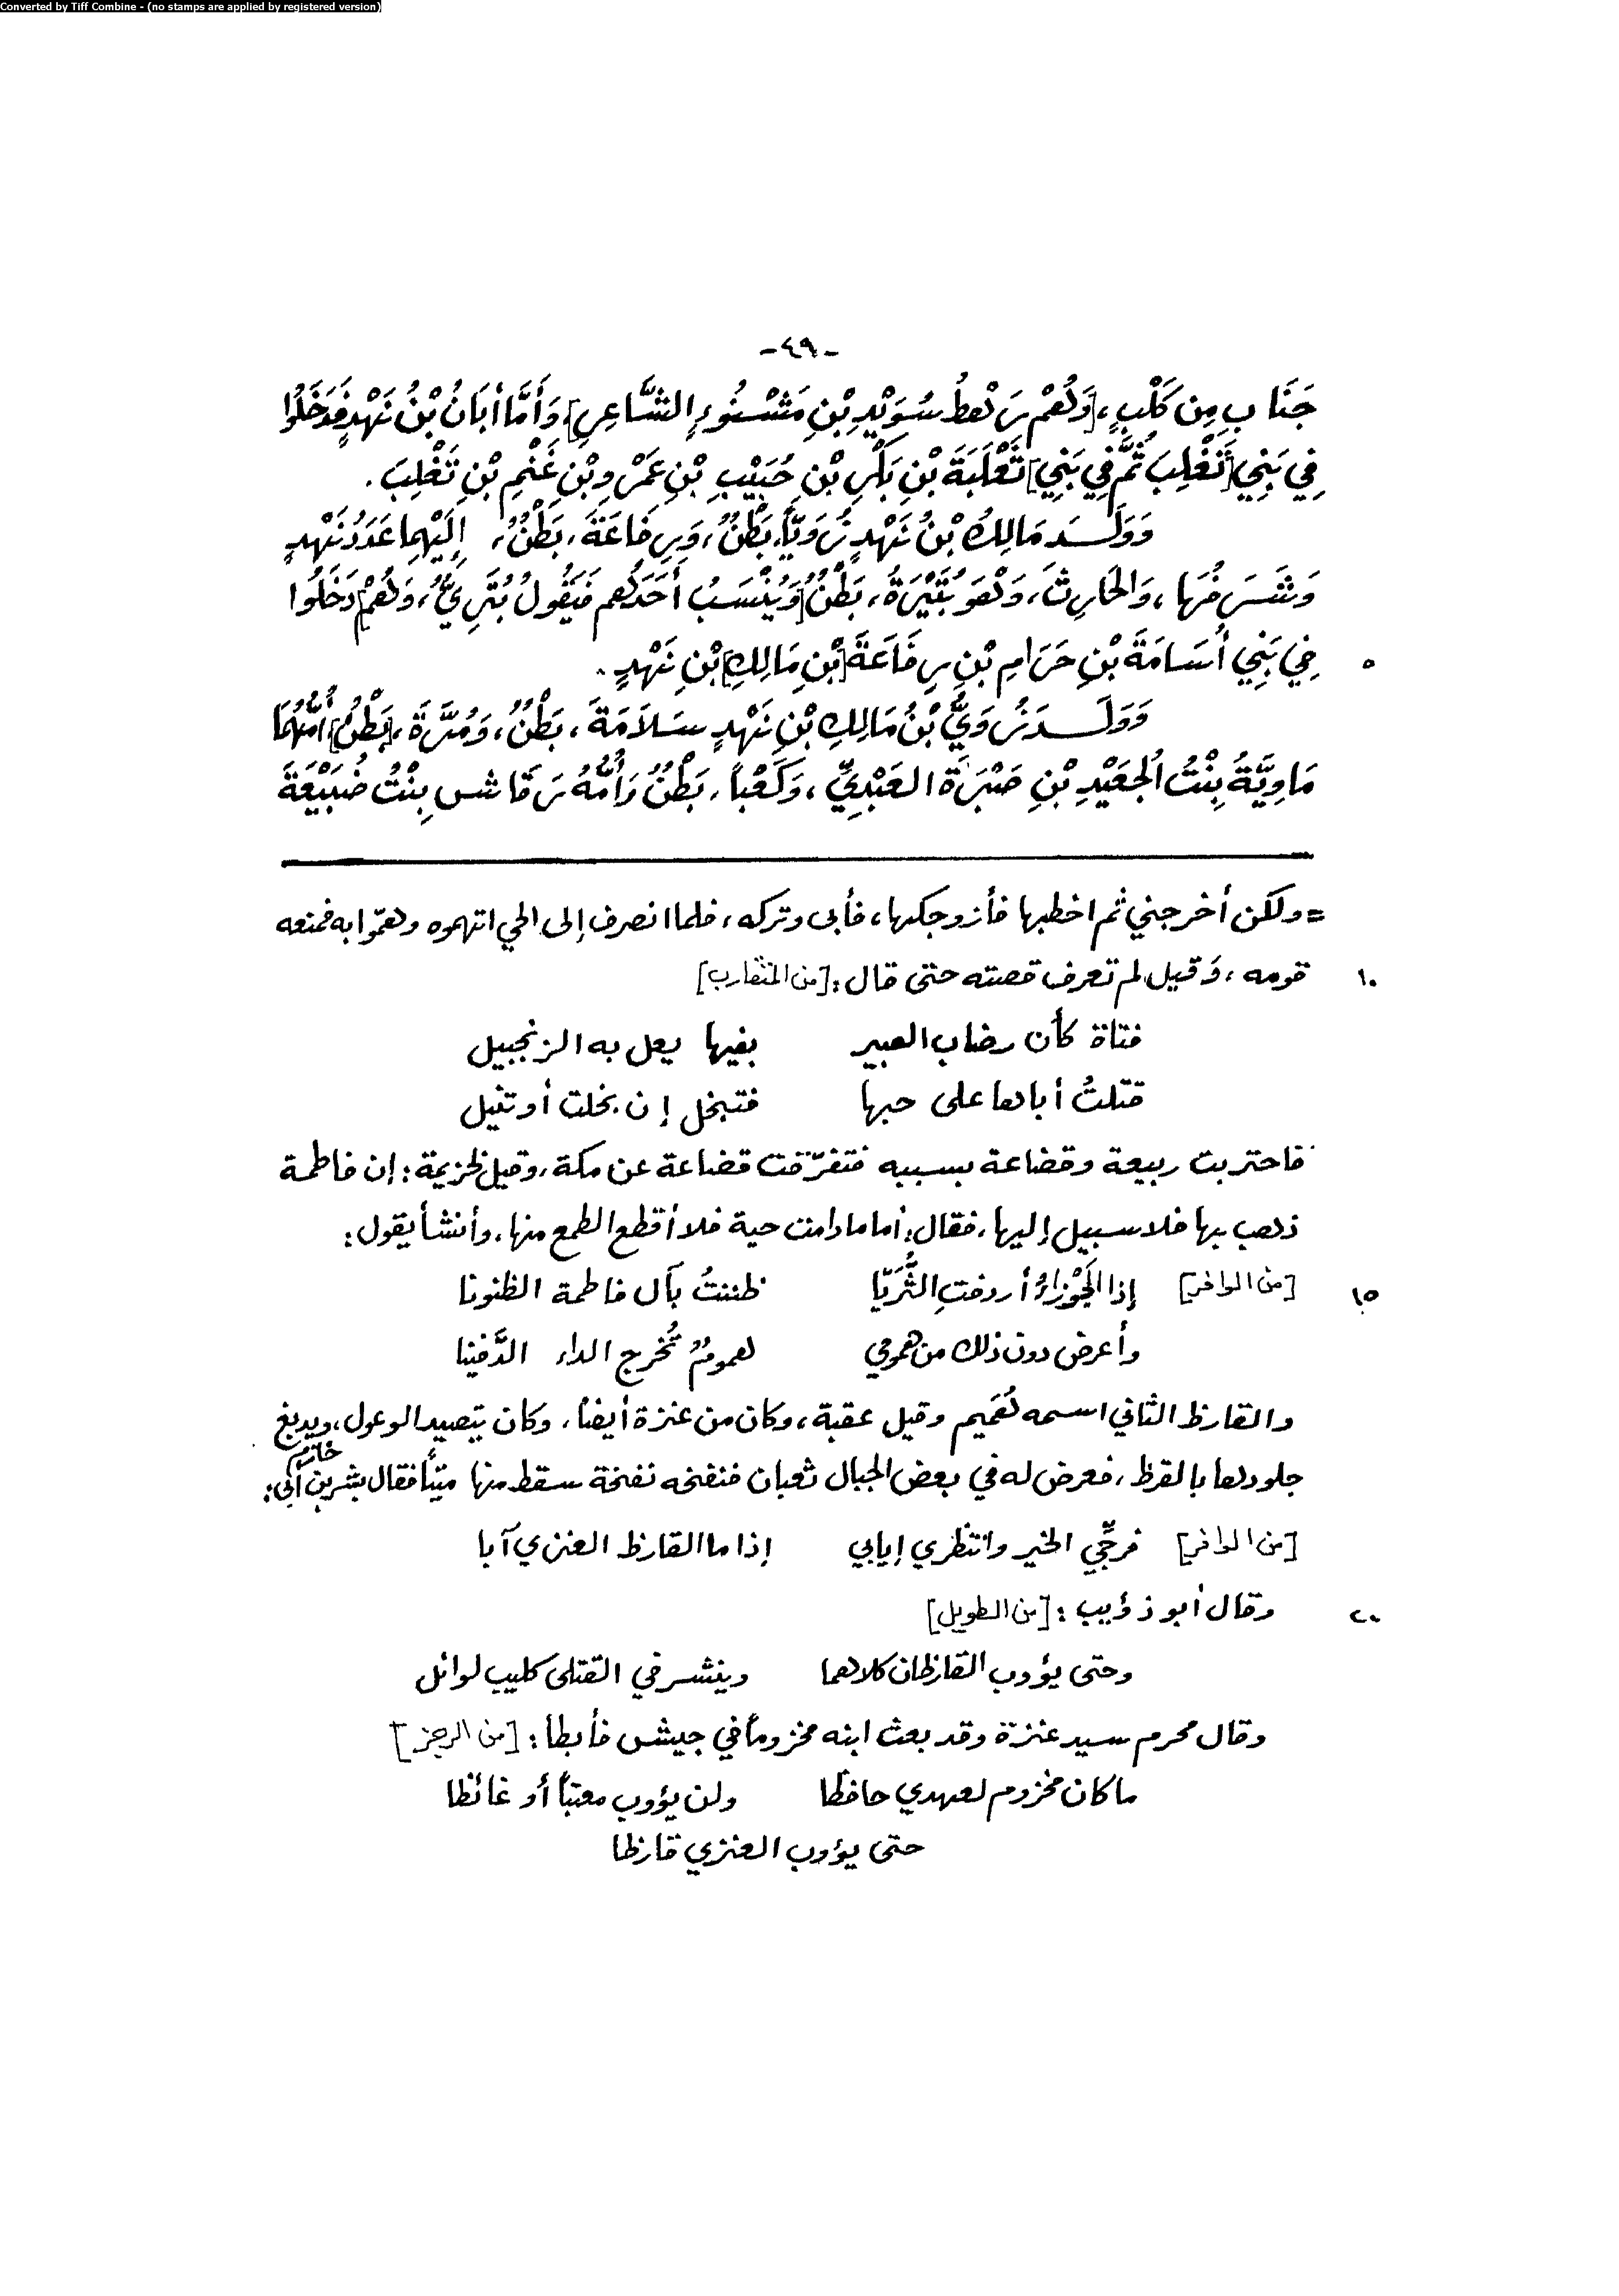 Converted by Tiff Combine - (no stamps are applied by registered version)
-٤٩-
جَنَابِ مِن كَلْبٍ، [وَهُمْ رَهْطُ سُوَيْدِ بْنِ مَشْنُوءٍ الشَّاعِرِ]، وَأَمَّا أَبَانُ بْنُ نَهْدٍ فَدَخَلُوا
فِي بَنِي [تَغْلِبَ ثُمَّ فِي بَنِي] ثَعْلَبَةَ بْنِ بَكْرِ بْنِ حُبَيْبِ بْنِ عَمْرِو بْنِ غَنْمِ بْنِ تَغْلِبَ.
وَوَلَدَ مَالِكُ بْنُ نَهْدٍ زُوَيّاً، بَطْنٌ، وَرِفَاعَةَ، بَطْنٌ، إِلَيْهِمَا عَدَدُ نَهْدٍ
وَشَرَفُهَا، وَالحَارِثَ، وَهُوَ بُتَيْرَةُ، بَطْنٌ [وَيُنْسَبُ أَحَدُهُم فَيَقُولُ بُتَرِيٌّ، وَهُمْ] دَخَلُوا
فِي بَنِي أُسَامَةَ بْنِ حَرَامِ بْنِ رِفَاعَةَ [بْنِ مَالِكِ] بْنِ نَهْدٍ. ٥
وَوَلَدَ زُوَيُّ بْنُ مَالِكِ بْنِ نَهْدٍ سَلَامَةَ، بَطْنٌ، وَمُرَّةَ، [بَطْنٌ]، أُمُّهُمَا
مَاوِيَّةُ بِنْتُ الجُعَيْدِ بْنِ صَبْرَةَ العَبْدِيِّ، وَكَعْباً، بَطْنٌ وَأُمُّهُ رَقَاشِ بِنْتُ ضُبَيْعَةَ
= ولكن أخرجني ثم اخطبها فأزوجكها، فأبى وتركه، فلما انصرف إلى الحي اتهموه وهمّوا به فمنعه
قومه، وقيل لم تعرف قصته حتى قال: [من المتقارب] ١٠
فتاة كأن رضاب العبير بفيها يعل به الزنجبيل
قتلتُ أباها على حبها فتبخل إن بخلت أو تنيل
فاحتربت ربيعة وقضاعة بسببه فتفرّقت قضاعة عن مكة، وقيل لخزيمة: إن فاطمة
ذهب بها فلا سبيل إليها، فقال: أما مادامت حية فلا أقطع الطمع منها، وأنشأ يقول:
[من الوافر] إذا الجَوْزاءُ أردفتِ الثُّرَيّا ظننتُ بآل فاطمة الظنونا ١٥
وأعرض دون ذلك من همومي همومٌ تُخرج الداء الدَّفينا
والقارظ الثاني اسمه هُمَيم وقيل عقبة، وكان من عنزة أيضاً، وكان يتصيد الوعول، ويدبغ
جلودها بالقرظ، فعرض له في بعض الجبال ثعبان فنفخه نفخة سقط منها ميتاً فقال بشر بن أبي خازم:
[من الوافر] فرجّي الخير وانتظري إيابي إذا ما القارظ العنزي آبا
وقال أبو ذؤيب: [من الطويل] ٢٠
وحتى يؤوب القارظان كلاهما وينشر في القتلى كليب لوائل
وقال محرم سيد عنزة وقد بعث ابنه مخزوماً في جيش فأبطأ: [من الرجز]
ما كان مخزوم لعهدي حافظا ولن يؤوب معتباً أو غائظا
حتى يؤوب العنزي قارظا